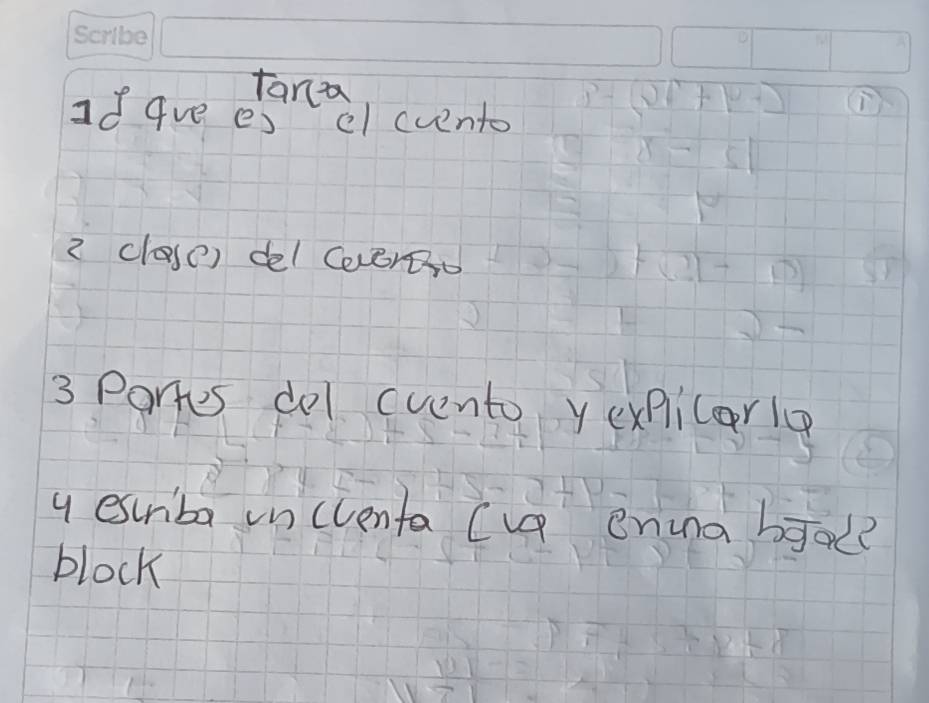 Scribe
Tarea
1 ¿ que es el cuento
2 clases del cuento
3 Partes del cuento y explicarla
4 escriba un cuenta en una hoja de
block